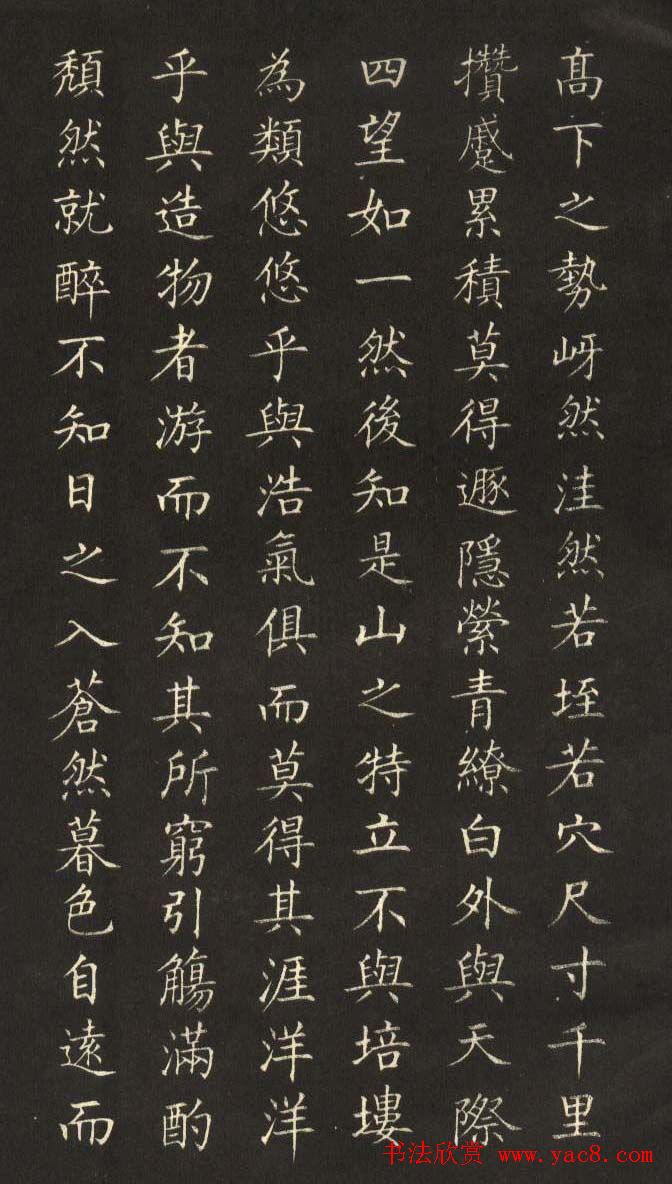 髙下之勢岈然洼然若垤若穴尺寸千里
攢蹙累積莫得遯隱縈青繚白外與天際
四望如一然後知是山之特立不與培塿
為類悠悠乎與浩氣俱而莫得其涯洋洋
乎與造物者游而不知其所窮引觴滿酌
頽然就醉不知日之入蒼然暮色自遠而
书法欣赏 www.yac8.com